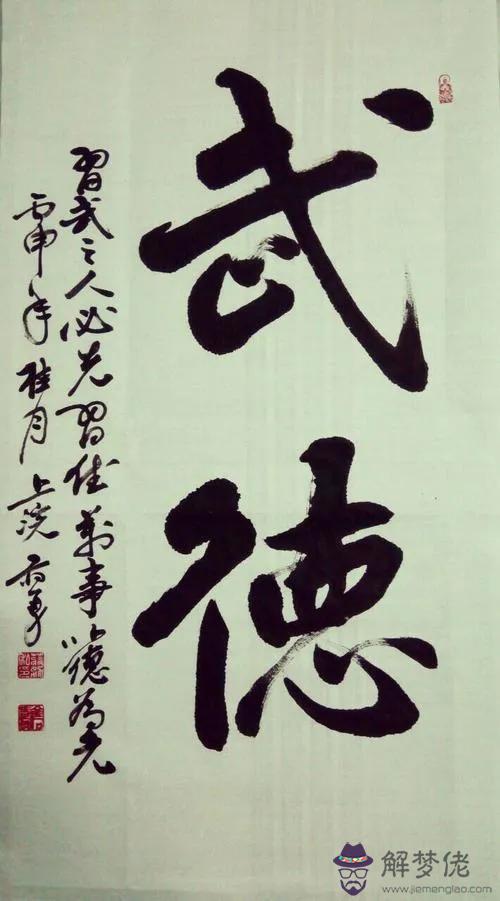 武德
習武之人必先習德萬事以德為先
丙申年桂月上浣
解梦佬
www.jiemenglao.com